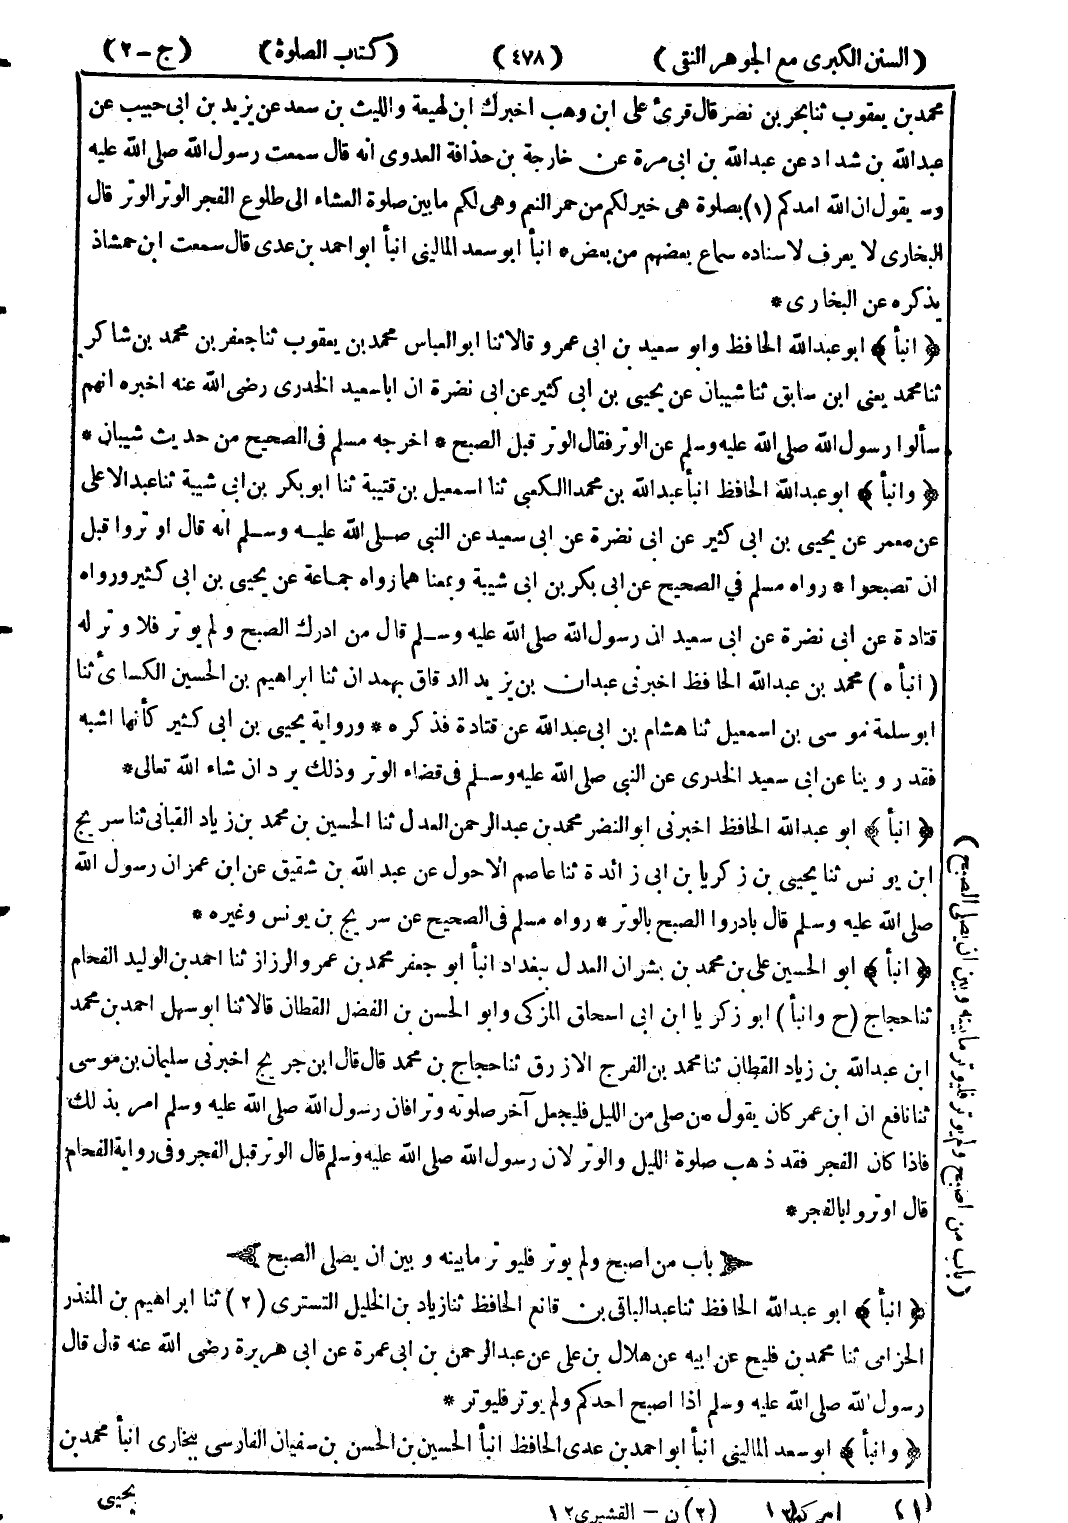 ( السنن الكبرى مع الجوهر النقى ) ( ٤٧٨ ) ( كتاب الصلوة ) ( ج - ٢ )
محمد بن يعقوب ثنا بحر بن نضر قال قرئ على ابن وهب اخبرك ابن لهيعة والليث بن سعد عن يزيد بن ابى حبيب عن
عبد الله بن شداد عن عبد الله بن ابى مرة عن خارجة بن حذافة العدوى انه قال سمعت رسول الله صلى الله عليه
وسـ يقول ان الله امدكم (١) بصلوة هى خير لكم من حمر النعم وهى لكم ما بين صلوة العشاء الى طلوع الفجر الوتر الوتر قال
البخارى لا يعرف لاسناده سماع بعضهم من بعض * انبأ ابو سعد المالينى انبأ ابو احمد بن عدى قال سمعت ابن حمشاذ
يذكره عن البخارى *
﴿ انبأ ﴾ ابو عبد الله الحافظ وابو سعيد بن ابى عمرو قالا ثنا ابو العباس محمد بن يعقوب ثنا جعفر بن محمد بن شاكر
ثنا محمد يعنى ابن سابق ثنا شيبان عن يحيى بن ابى كثير عن ابى نضرة ان ابا سعيد الخدرى رضى الله عنه اخبره انهم
سألوا رسول الله صلى الله عليه وسلم عن الوتر فقال الوتر قبل الصبح * اخرجه مسلم فى الصحيح من حديث شيبان *
﴿ وانبأ ﴾ ابو عبد الله الحافظ انبأ عبد الله بن محمد الكعبى ثنا اسمعيل بن قتيبة ثنا ابو بكر بن ابى شيبة ثنا عبد الاعلى
عن معمر عن يحيى بن ابى كثير عن ابى نضرة عن ابى سعيد عن النبى صلى الله عليه وسلم انه قال اوتروا قبل
ان تصبحوا * رواه مسلم فى الصحيح عن ابى بكر بن ابى شيبة وبمعناهما رواه جماعة عن يحيى بن ابى كثير ورواه
قتادة عن ابى نضرة عن ابى سعيد ان رسول الله صلى الله عليه وسلم قال من ادرك الصبح ولم يوتر فلا وتر له
( انبأه ) محمد بن عبد الله الحافظ اخبرنى عبدان بن يزيد الدقاق بهمدان ثنا ابراهيم بن الحسين الكسائى ثنا
ابو سلمة موسى بن اسمعيل ثنا هشام بن ابى عبد الله عن قتادة فذكره * ورواية يحيى بن ابى كثير كأنها اشبه
فقد روينا عن ابى سعيد الخدرى عن النبى صلى الله عليه وسلم فى قضاء الوتر وذلك يرد ان شاء الله تعالى *
﴿ انبأ ﴾ ابو عبد الله الحافظ اخبرنى ابو النضر محمد بن عبد الرحمن العدل ثنا الحسين بن محمد بن زياد القبانى ثنا سريج
ابن يونس ثنا يحيى بن زكريا بن ابى زائدة ثنا عاصم الاحول عن عبد الله بن شقيق عن ابن عمر ان رسول الله
صلى الله عليه وسلم قال بادروا الصبح بالوتر * رواه مسلم فى الصحيح عن سريج بن يونس وغيره *
﴿ انبأ ﴾ ابو الحسين على بن محمد بن بشران العدل ببغداد انبأ ابو جعفر محمد بن عمرو الرزاز ثنا احمد بن الوليد الفحام
ثنا حجاج ( ح وانبأ ) ابو زكريا ابن ابى اسحاق المزكى وابو الحسن بن الفضل القطان قالا ثنا ابو سهل احمد بن محمد
ابن عبد الله بن زياد القطان ثنا محمد بن الفرج الازرق ثنا حجاج بن محمد قال قال ابن جريج اخبرنى سليمان بن موسى
ثنا نافع ان ابن عمر كان يقول من صلى من الليل فليجعل آخر صلوته وترا فان رسول الله صلى الله عليه وسلم امر بذلك
فاذا كان الفجر فقد ذهب صلوة الليل والوتر لان رسول الله صلى الله عليه وسلم قال الوتر قبل الفجر وفى رواية الفحام
قال اوتروا بالفجر *
باب من اصبح ولم يوتر فليوتر ما بينه وبين ان يصلى الصبح
﴿ انبأ ﴾ ابو عبد الله الحافظ ثنا عبد الباقى بن قانع الحافظ ثنا زياد بن الخليل التسترى ( ٢ ) ثنا ابراهيم بن المنذر
الحزامى ثنا محمد بن فليح عن ابيه عن هلال بن على عن عبد الرحمن بن ابى عمرة عن ابى هريرة رضى الله عنه قال قال
رسول الله صلى الله عليه وسلم اذا اصبح احدكم ولم يوتر فليوتر *
﴿ وانبأ ﴾ ابو سعد المالينى انبأ ابو احمد بن عدى الحافظ انبأ الحسين بن الحسن بن سفيان الفارسى ببخارى انبأ محمد بن
يحيى
(٢) ن - القشيرى ١٢
( باب من اصبح ولم يوتر فليوتر ما بينه وبين ان يصلى الصبح )